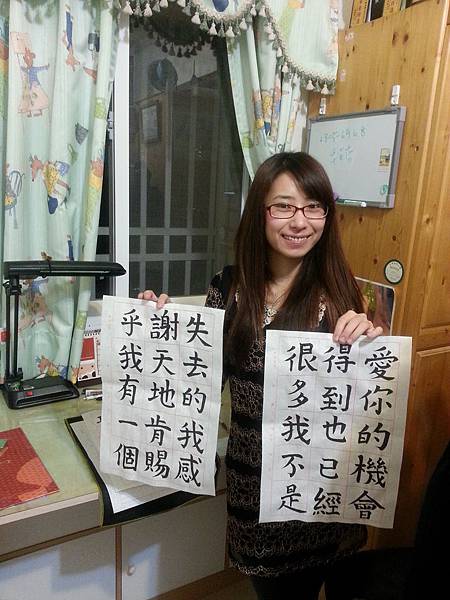 失去的我感
謝天地肯賜
乎我有一個
愛你的機會
得到也已經
很多我不是